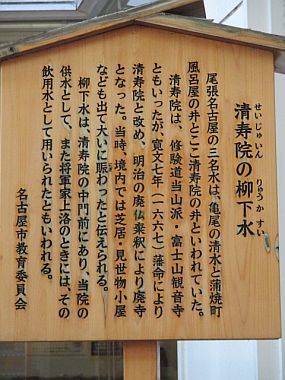 清寿院の柳下水
せいじゅいん りゅうかすい
尾張名古屋の三名水は、亀尾の清水と蒲焼町
風呂屋の井とここ清寿院の井といわれていた。
清寿院は、修験道当山派・富士山観音寺
ともいったが、寛文七年（一六六七）藩命により
清寿院と改め、明治の廃仏棄釈により廃寺
となった。当時、境内では芝居・見世物小屋
なども出て大いに賑わったと伝えられる。
柳下水は、清寿院の中門前にあり、当院の
供水として、また将軍家上洛のときには、その
飲用水として用いられたともいわれる。
名古屋市教育委員会